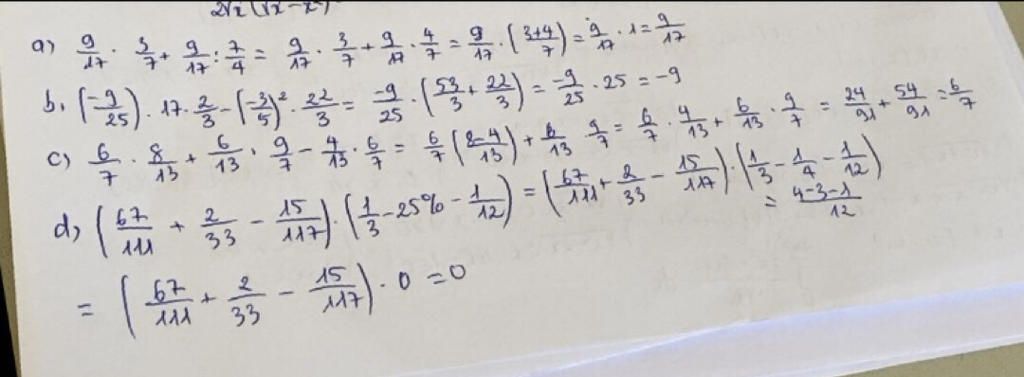 2√x (√x - x)
a) 9/17 · 3/7 + 9/17 : 7/4 = 9/17 · 3/7 + 9/17 · 4/7 = 9/17 · (3+4/7) = 9/17 · 1 = 9/17
b, (-9/25) · 17 · 2/3 - (-3/5)² · 22/3 = -9/25 · (53/3 + 22/3) = -9/25 · 25 = -9
c) 6/7 · 8/13 + 6/13 · 9/7 - 4/13 · 6/7 = 6/7 (8-4/13) + 6/13 9/7 = 6/7 · 4/13 + 6/13 · 9/7 = 24/91 + 54/91 = 6/7
d, (67/111 + 2/33 - 15/117) · (1/3 - 25% - 1/12) = (67/111 + 2/33 - 15/117) · (1/3 - 1/4 - 1/12)
= 4-3-1/12
= (67/111 + 2/33 - 15/117) · 0 = 0